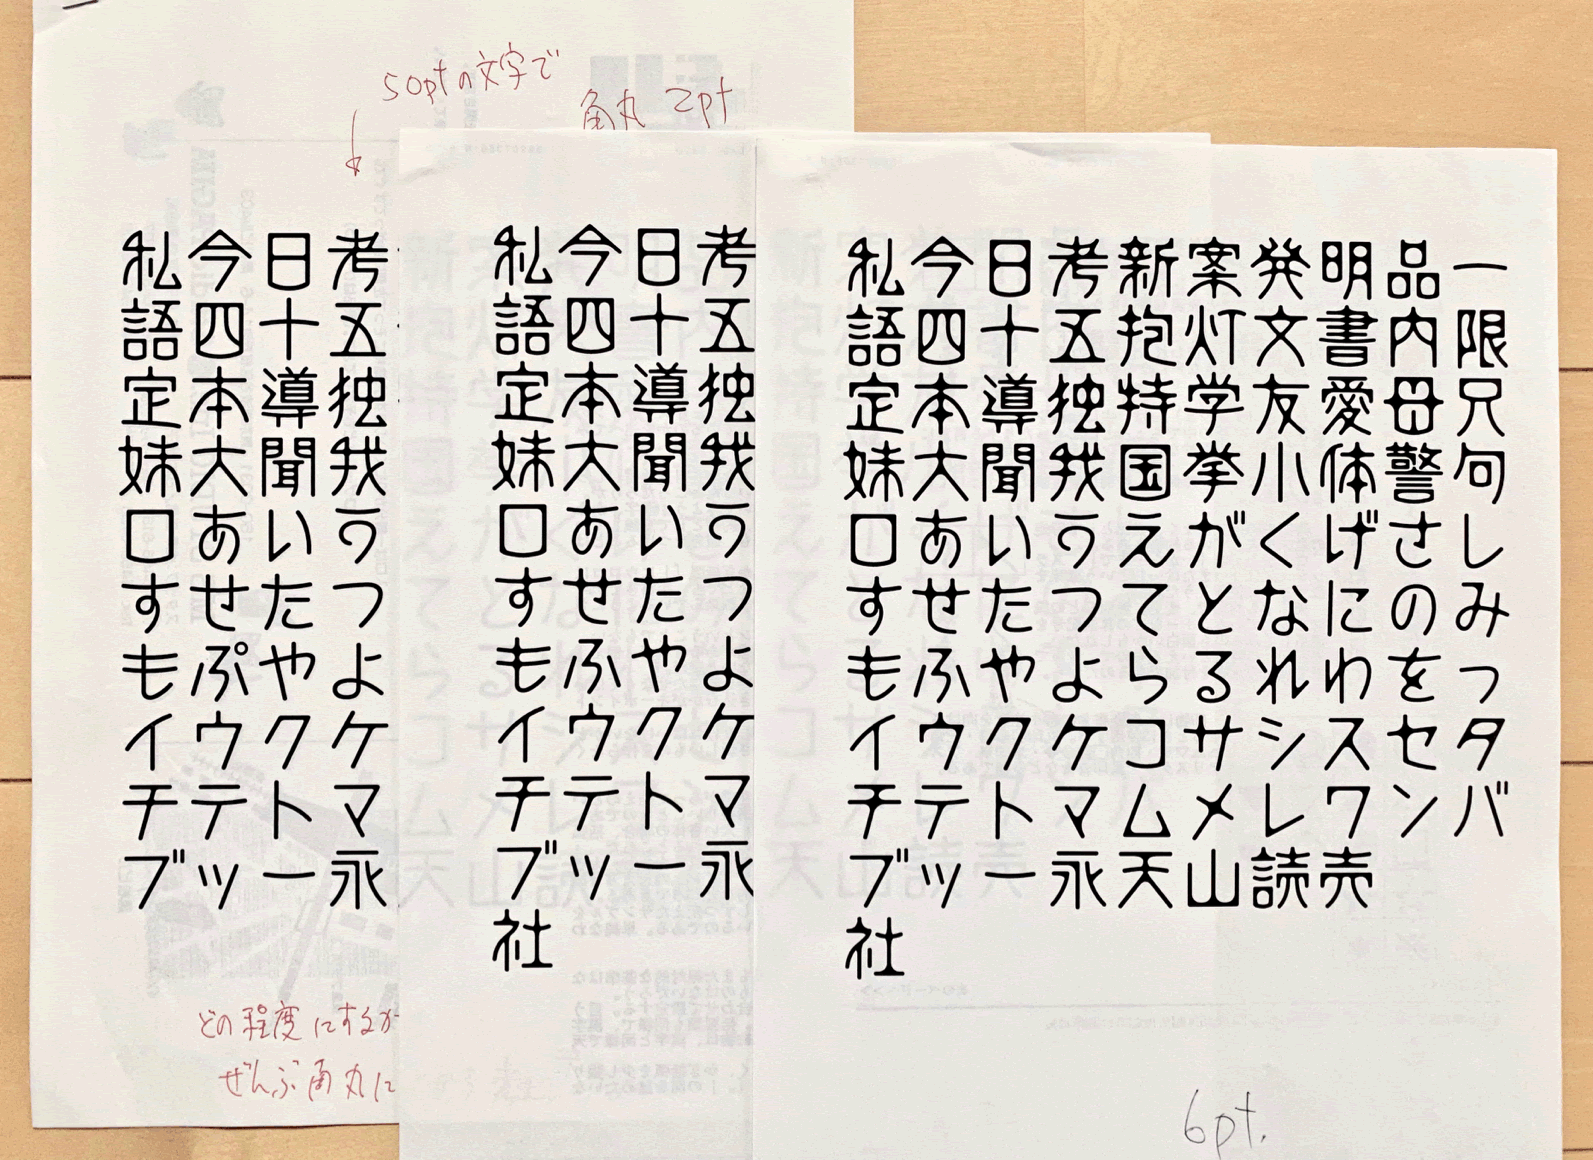 50ptの文字で
角丸 2pt
私今日考
語四十五
定本導独
妹大聞我
口あいう
すせたつ
もぷやよ
イウクケ
チテトマ
ブッー永
どの程度にするか
ぜんぶ角丸に
私今日考
語四十五
定本導独
妹大聞我
口あいう
すせたつ
もふやよ
イウクケ
チテトマ
ブッー永
社
私今日考新案発明品一
語四十五抱灯文書内限
定本導独持学友愛母兄
妹大聞我国挙小体警句
口あいうえがくげさし
すせたつてとなにのみ
もふやよらるれわをっ
イウクケコサシスセタ
チテトマムメレワンバ
ブッー永天山読売
社
6pt.